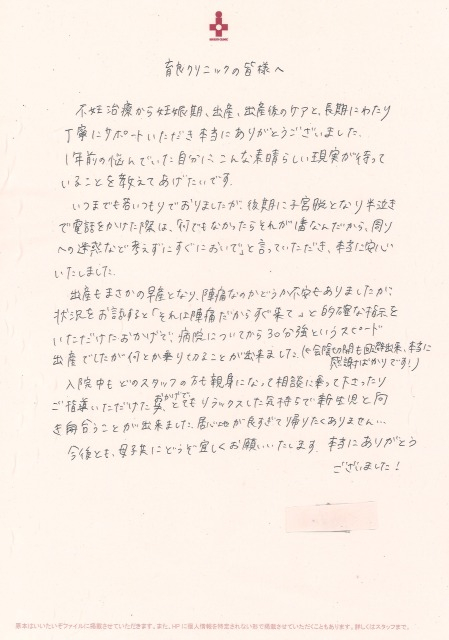 育良クリニックの皆様へ
不妊治療から妊娠期、出産、出産後のケアと、長期にわたり
丁寧にサポートいただき本当にありがとうございました。
1年前の悩んでいた自分に、こんな素晴らしい現実が待って
いることを教えてあげたいです。
いつまでも若いつもりでおりましたが、後期に子宮脱となり半泣き
で電話をかけた際は、「何でもなかったらそれが1番なんだから、周り
への迷惑など考えずにすぐにおいで」と言っていただき、本当に安心
いたしました。
出産もまさかの早産となり、陣痛なのかどうか不安もありましたが、
状況をお話すると「それは陣痛だからすぐ来て。」と的確な指示を
いただけたおかげで、病院についてから30分強というスピード
出産でしたが何とか乗りきることが出来ました。(会陰切開も回避出来、本当に
感謝ばかりです!)
入院中もどのスタッフの方も親身になって相談に乗って下さったり
ご指導いただけたおかげで、とてもリラックスした気持ちで新生児と向
き合うことが出来ました。居心地が良すぎて帰りたくありません…
今後とも、母子共にどうぞ宜しくお願いいたします。本当にありがとう
ございました!
原本はいいたいぞファイルに掲載させていただきます。また、HPに個人情報を特定されない形で掲載させていただくこともあります。詳しくはスタッフまで。